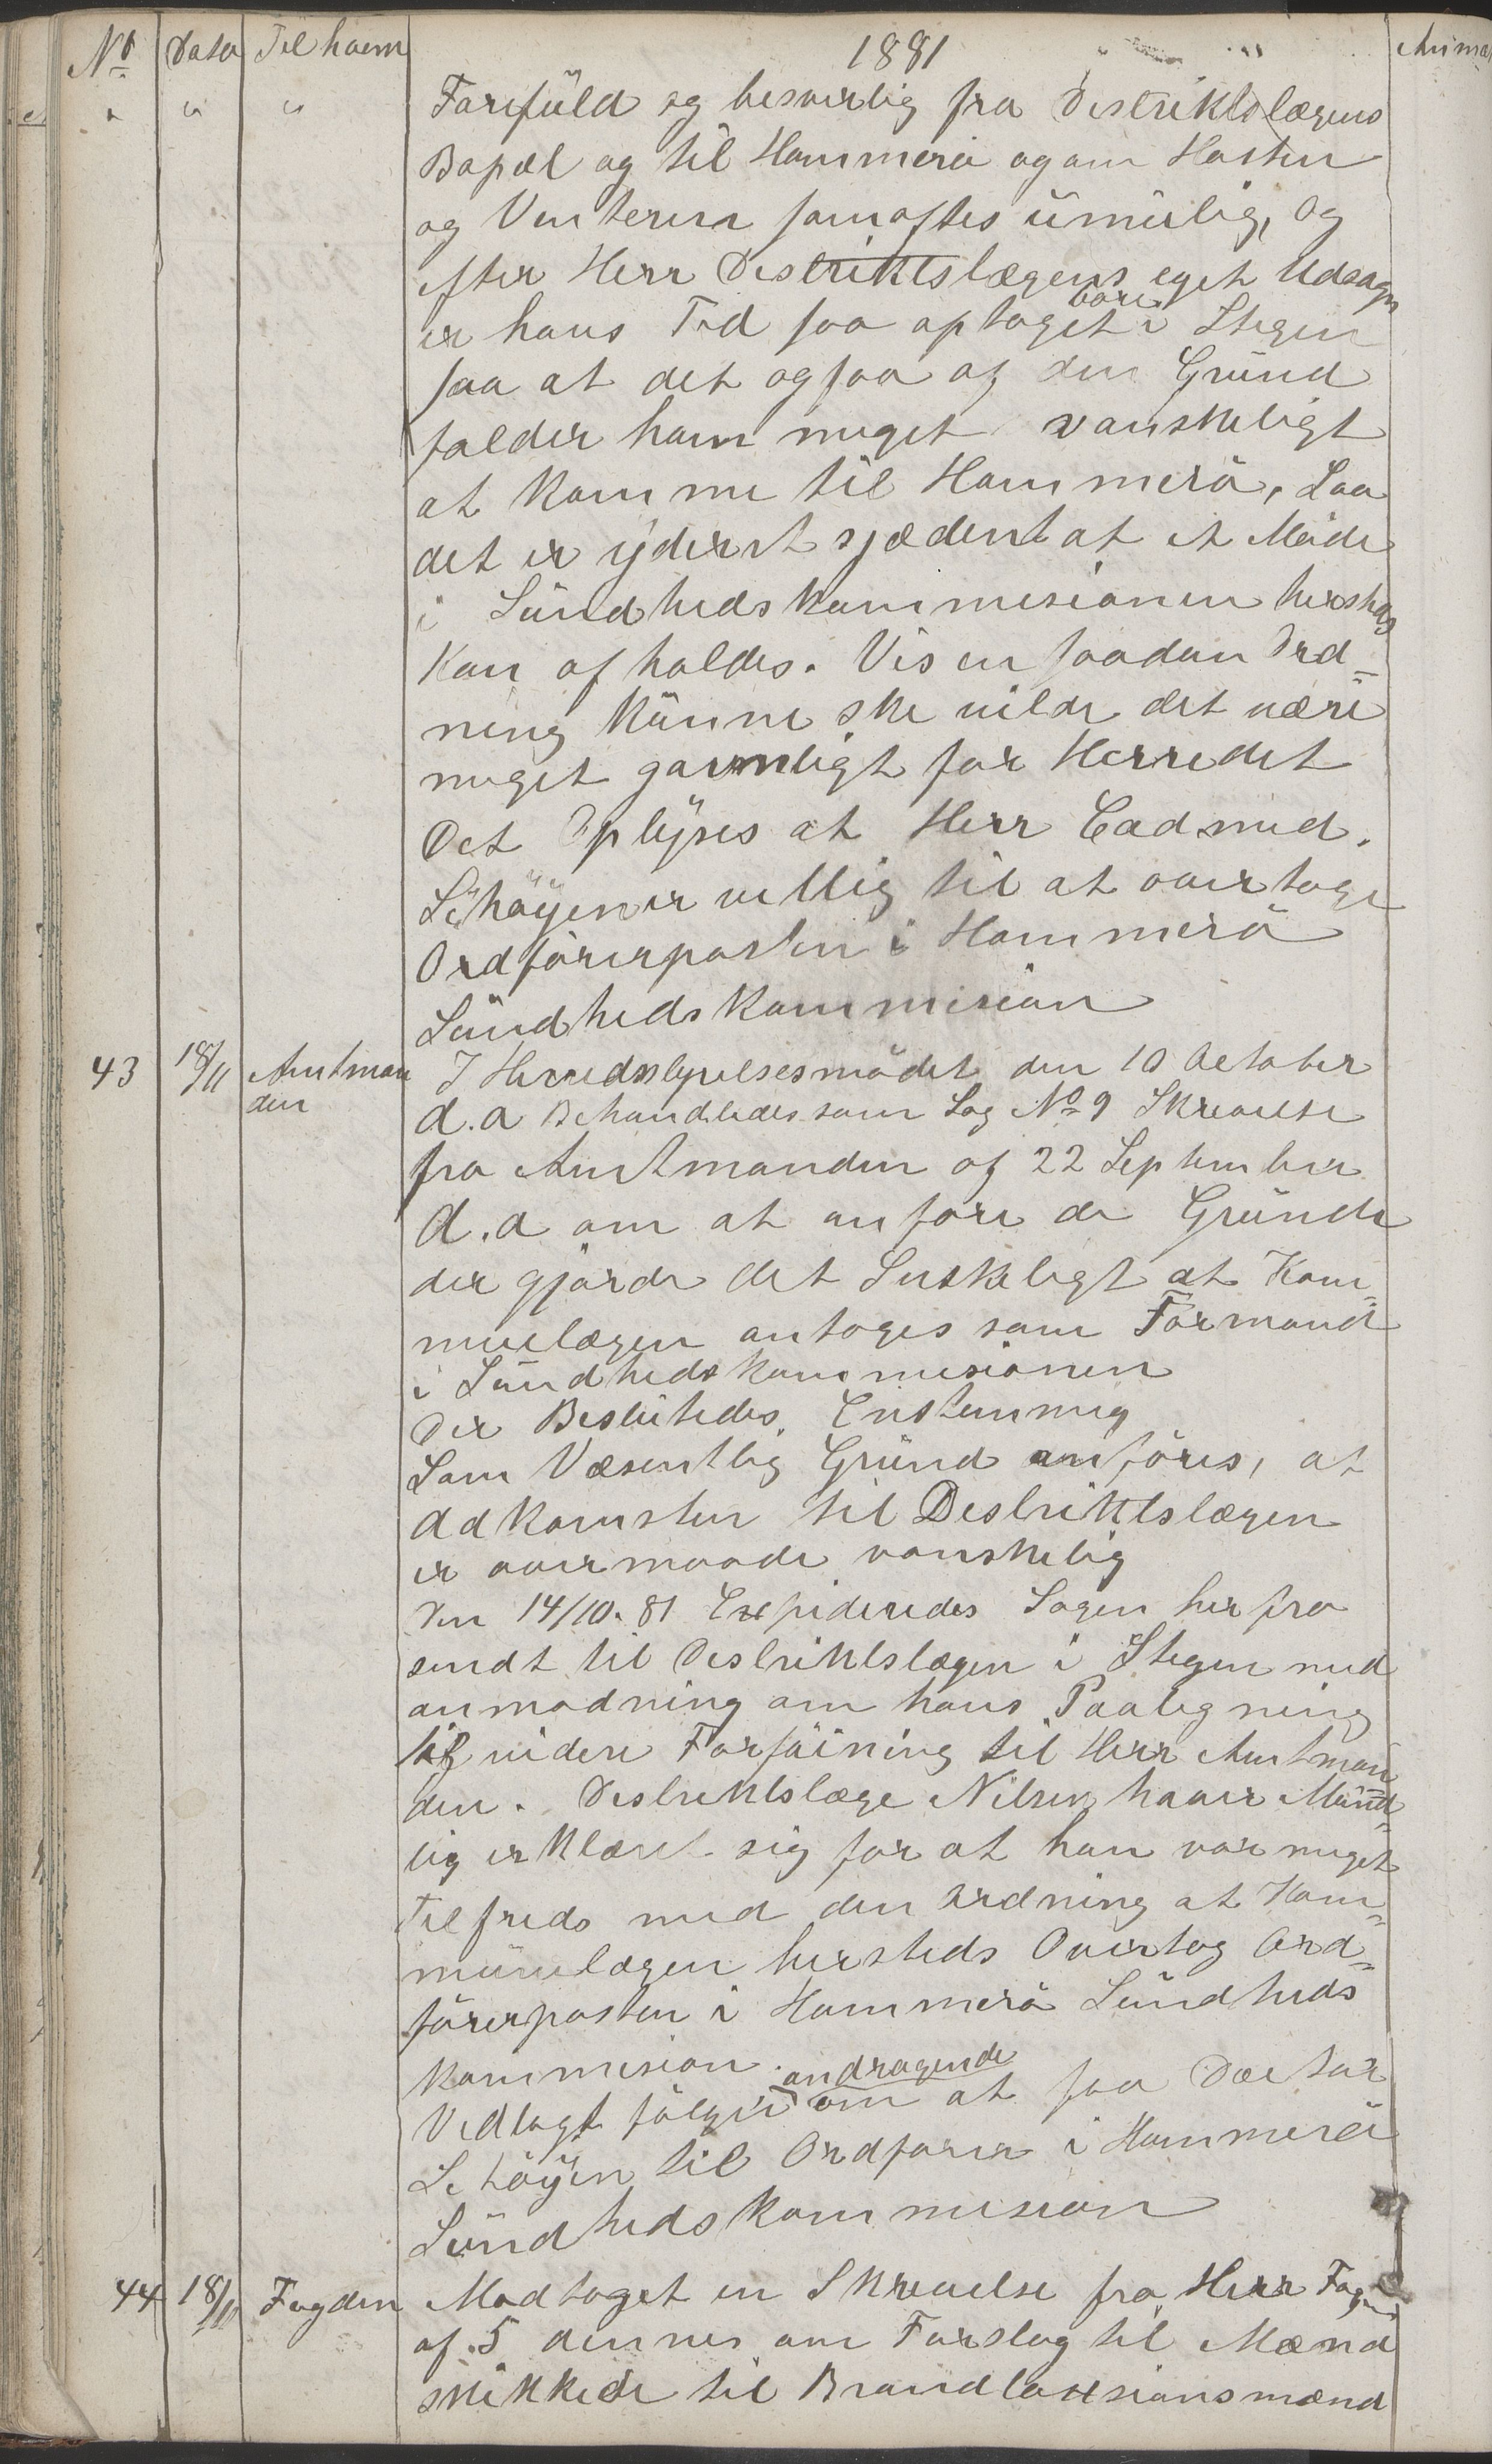 No Dato Til hvem 1881 Anmæ
" " " Farefuld og besverlig fra Destriktslægens
Bopæl og til Hammerø og om Høsten
og Venteren somoftes umulig, og
efter Herr Destriktslægens eget Udsagn
er hans Tid saa optaget bare i Stegen
saa at det ogsaa af den Grund
falder ham meget vanskeligt
at komme til Hammerø, Saa
det er yderst sjædent at et Møde
i Sundhedskommesionen hersteds
kan afholdes. Vis en saadan Ord-
ning kunne ske vilde det være
meget gavnligt for Herredet
Det Oplyses at Herr Cad. med.
Schøyen er vellig til at overtage
Ordførerposten i Hammerø
Sundhedskommision
43 18/11 Amtman I Herredsstyrelsesmødet den 10 October
den d.a Behandledes som Sag No 9 Skrevelse
fra Amtmanden af 22 September
d.a om at anføre de Grunde
der gjorde det Ønskeligt at Kom-
munelægen antoges som Formand
i Sundhedskommesionen
Der Beslutedes Enstemmig
Som Væsentlig Grund anføres, at
Adkomsten til Destriktslægen
er overmaade vanskelig
Den 14/10. 81 Expideredes Sagen herfra
sendt til Destriktslægen i Stegen med
anmodning om hans Paategning
til videre Forføining til Herr Amtman
den. Destriktslæge Nilsen haver Mund-
lig erklæret sig for at han var meget
Tilfreds med den ordning at Kom-
munelægen hersteds Overtog Ord-
førerposten i Hammerø Sundheds
kommision.
Vedlagt følger andragende om at faa Doctor
Schøyen til Ordfører i Hammerø
Sundhedskommesion
44 18/11 Fogden Modtaget en Skrevelse fra Herr Foged
af 5 dennes om Forslag til Mænd
skikkede til Brandtaxsionsmænd